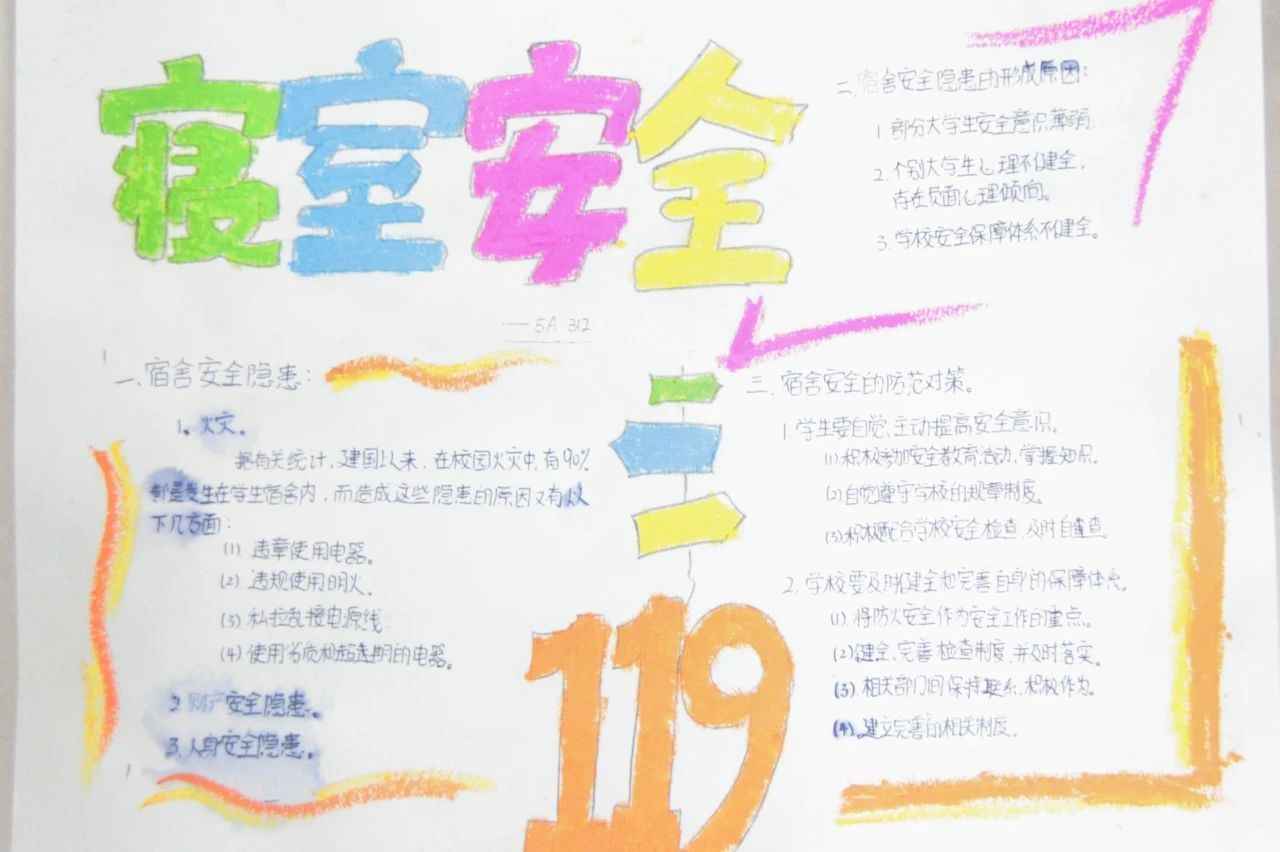 寝室安全
——5A 312
一、宿舍安全隐患：
1。火灾。
据有关统计，建国以来，在校园火灾中，有90%
都是发生在学生宿舍内，而造成这些隐患的原因又有以
下几方面：
(1) 违章使用电器。
(2) 违规使用明火。
(3) 私拉乱接电源线
(4) 使用劣质和超过期的电器。
2 财产安全隐患。
3、人身安全隐患。
119
二、宿舍安全隐患的形成原因：
1 部分大学生安全意识薄弱.
2. 个别大学生心理不健全，
存在负面心理倾向。
3. 学校安全保障体系不健全。
三、宿舍安全的防范对策。
1.学生要自觉、主动提高安全意识。
(1)积极参加安全教育活动、掌握知识。
(2)自觉遵守学校的规章制度。
(3)积极配合学校安全检查，及时自查。
2. 学校要及时健全和完善自身的保障体系。
(1). 将防火安全作为安全工作的重点。
(2)健全、完善检查制度，并及时落实。
(3) 相关部门间保持联系、积极作为。
(4).建立完善的相关制度。